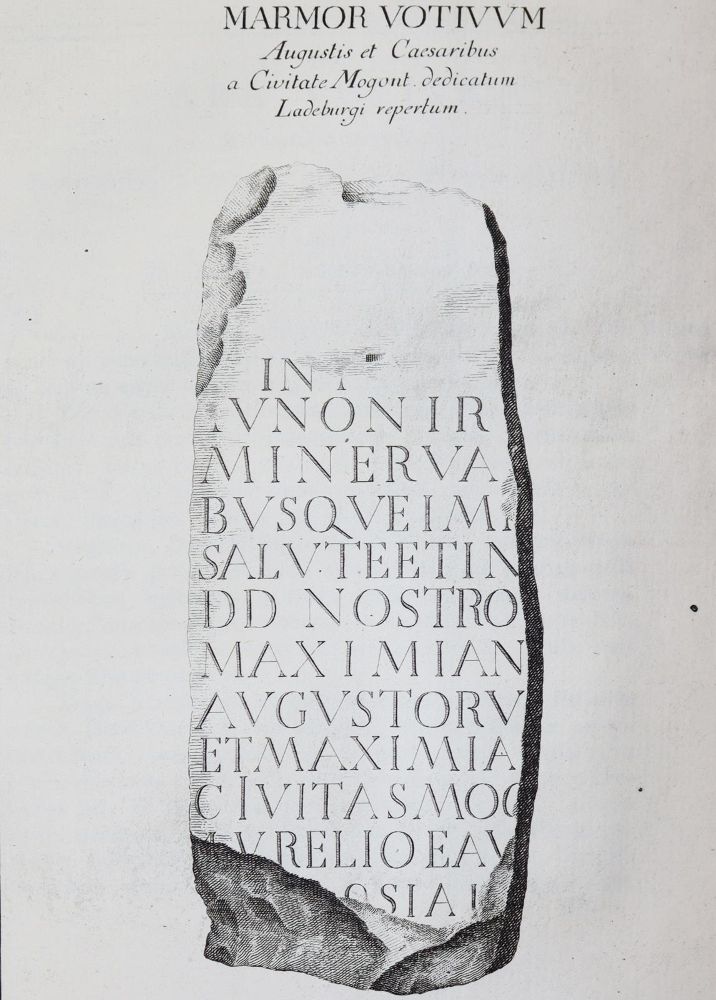 MARMOR VOTIVVM
Augustis et Caesaribus
a Civitate Mogont. dedicatum
Ladeburgi repertum.
IN
IVNONI R
MINERVA
BVSQVE IMM
SALVTE ET IN
DD NOSTRO
MAXIMIAN
AVGVSTORV
ET MAXIMIA
CIVITAS MOG
AVRELIO E AV
OSIA